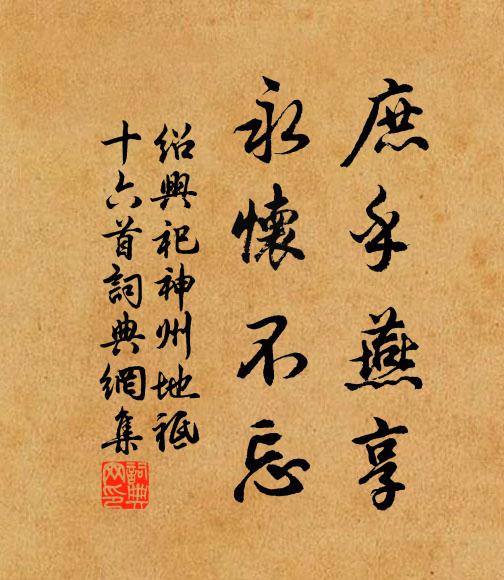 庶乎燕享
永懷不忘
紹興祀神州地祇
十六首詞典網集
詞典
网印